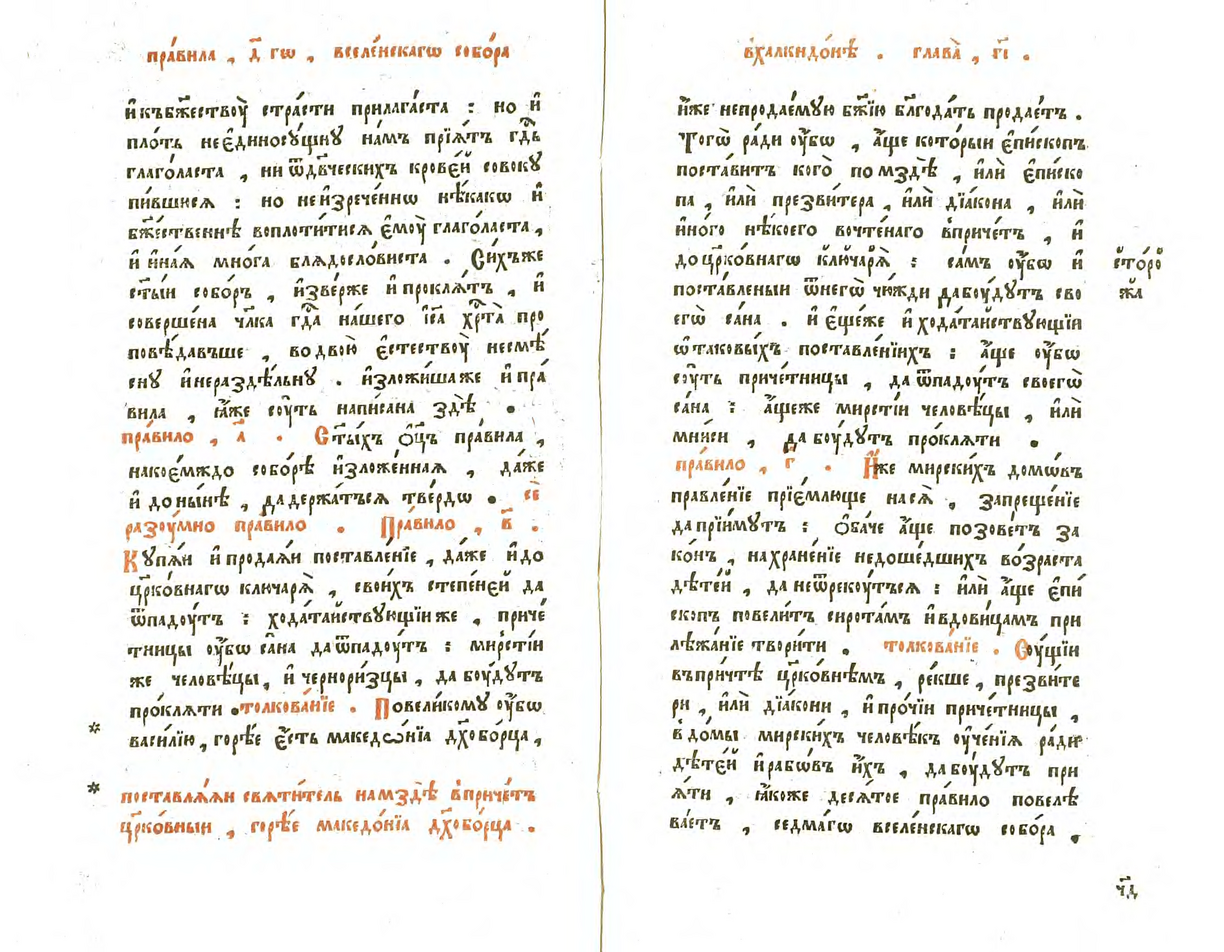 пра́вила , д҃ гѡ , вселе́нскагѡ собо́ра
и҆къбж҃ествоу̀ страсти прилага́ста : но и҆
пло́ть нее҆диносу́щну на́мъ прїѧ́тъ гдⷭ҇ь
глаго́ласта , ни ѿдв҃ческихъ крове́й совоку
пи́вшисѧ : но неи҆зрече́ннѡ нѣ́какѡ и҆
бж҃ественнѣ воплоти́тисѧ є҆моу̀ глаго́ласта ,
и҆ и҆на́ѧ мно́га блѧдосло́виста . Си́хъже
ст҃ы́и собо́ръ , и҆зве́рже и҆ проклѧ́тъ , и҆
соверше́на чл҃ка гдⷭ҇а на́шего і҆с҃а хрⷭ҇та̀ про
повѣ́давъше , во двою̀ є҆стествоу̀ несмѣ́
сну и҆нераздѣ́льну . и҆зложи́шаже и҆ пра́
вила , ꙗ҆́же соу́ть напи́сана здѣ̀ .
пра́вило , а҃ . Ст҃ы́хъ ѻ҆ц҃ъ пра́вила ,
накое́мждо собо́рѣ и҆зложе́ннаѧ , да́же
и҆ доны́нѣ , да держа́тьсѧ тве́рдѡ . сѐ
разоу́мно пра́вило . Пра́вило , в҃ .
Купѧ́и и҆ прода́ѧи поставле́нїе , да́же и҆до
цр҃ко́внагѡ ключарѧ̀ , свои́хъ степе́ней да
ѿпадоу́тъ : хода́таиствующїиже , приче́
тницы оу҆́бѡ са́на даѿпадоу́тъ : мирстїи
же человѣ́цы , и҆ черноризцы , да боу́дутъ
про́клѧти . толкова́нїе . Повели́кому оу҆́бѡ
васи́лїю , го́рѣе є҆́сть македѡ́нїѧ дх҃обо́рца ,
поставлѧ́ѧи свѧти́тель намздѣ̀ впри́чéтъ
цр҃ко́вныи , го́рѣе македо́нїѧ дх҃обо́рца .
в҆халкидо́нѣ . глава̀ , г҃і .
и҆́же непродае́мую бж҃їю бл҃года́ть продае́тъ .
Тогѡ̀ ра́ди оу҆́бѡ , а҆́ще кото́рыи є҆пи́скопъ
поста́витъ кого̀ по мздѣ̀ , и҆лѝ є҆пи́ско
па , и҆лѝ презви́тера , и҆лѝ дїа́кона , и҆лѝ
и҆но́го нѣ́коего вочте́наго впри́чéтъ , и҆
до цр҃ко́внагѡ ключарѧ̀ : са́мъ оу҆́бѡ и҆
поста́вленыи ѿнегѡ̀ чю́жди да боу́дутъ сво
егѡ̀ са́на . и҆ є҆ще́же и҆ хода́таиствующїи
ѡ҆ таковы́хъ поставле́нїихъ : а҆́ще оу҆́бѡ
соу́ть приче́тницы , да ѿпадоу́тъ своегѡ̀
са́на : а҆́щеже мирстїи человѣ́цы , и҆лѝ
мни́си , да боу́дутъ про́клѧти .
пра́вило , г҃ . И҆́же мирски́хъ домѡ́въ
правле́нїе прїе́млюще на сѧ̀ , запреще́нїе
да прїи́мутъ : ѻ҆ба́че а҆́ще позове́тъ за
ко́нъ , на хране́нїе недоше́дшихъ во́зраста
дѣте́й , да неѿреко́утьсѧ : и҆лѝ а҆́ще є҆пи́
скопъ повели́тъ сирота́мъ и҆ вдови́цамъ при
лѣжа́нїе твори́ти . толкова́нїе . Соу́щїи
въ при́чтѣ цр҃ко́внѣмъ , ре́кше , презви́те
ри , и҆лѝ дїа́кони , и҆ про́чїи приче́тницы ,
в до́мы мирски́хъ человѣ́къ оу҆че́нїѧ ра́ди
дѣте́й и҆ рабѡ́въ и҆́хъ , да боу́дутъ при
ѧ́ти , ꙗ҆́коже десѧ́тое пра́вило повелѣ
ва́етъ , седма́гѡ вселе́нскагѡ собо́ра .
сто́ро
жа
ч҃д